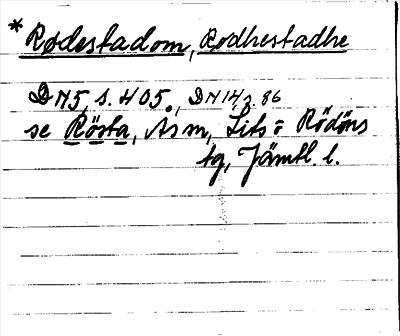 * Rødestadom, Rodhestadhe
DN 5, s. 405, DN 14, s. 86
se Rösta, Ås sn, Lits o Rödöns
tg, Jämtl. l.